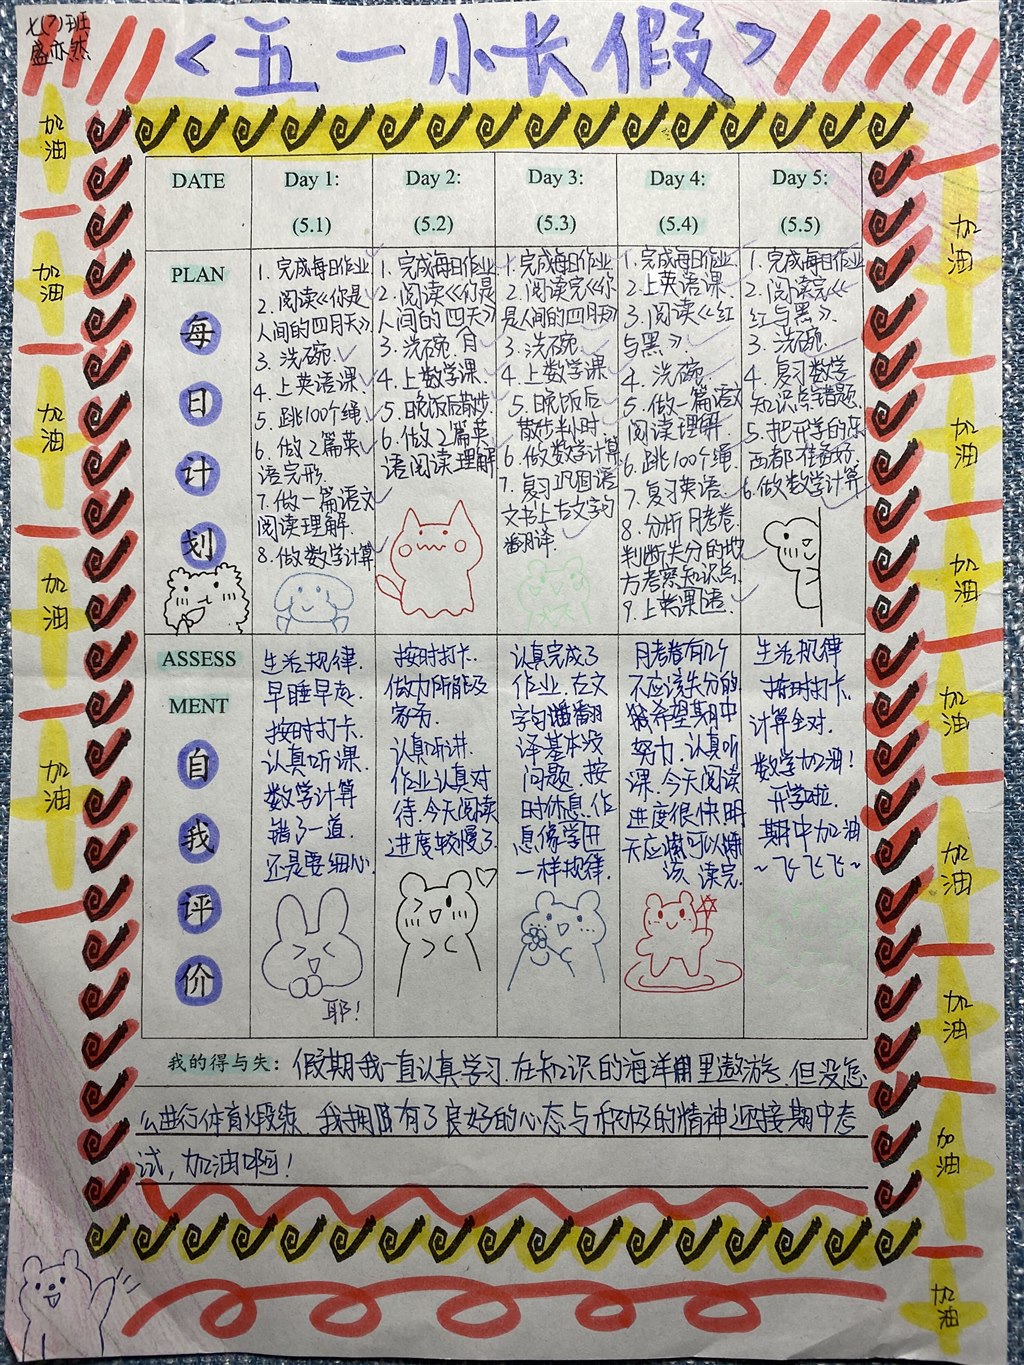 七(7)班
盛亦然
<五一小长假>
DATE
Day 1:
(5.1)
Day 2:
(5.2)
Day 3:
(5.3)
Day 4:
(5.4)
Day 5:
(5.5)
PLAN
每
日
计
划
1. 完成每日作业
2. 阅读《你是
人间的四月天》
3. 洗碗.
4. 上英语课
5. 跳100个绳.
6. 做2篇英
语完形.
7. 做一篇语文
阅读理解.
8. 做数学计算
1. 完成每日作业
2. 阅读《你是
人间的四天》
3. 洗碗. 月
4. 上数学课.
5. 晚饭后散步.
6. 做2篇英
语阅读理解
1. 完成每日作业
2. 阅读完《你
是人间的四月天》
3. 洗碗.
4. 上数学课
5. 晚饭后
散步半小时.
6. 做数学计算
7. 复习巩固语
文书上古文字句
翻译.
1. 完成每日作业
2. 上英语课.
3. 阅读《红
与黑》
4. 洗碗.
5. 做一篇语文
阅读理解
6. 跳100个绳.
7. 复习英语.
8. 分析月考卷
判断失分的地
方考察知识点.
9. 上英语课.
1. 完成每日作业
2. 阅读完《
红与黑》.
3. 洗碗.
4. 复习数学
知识点错题.
5. 把开学的东
西都准备好.
6. 做数学计算
ASSESS
MENT
自
我
评
价
生活规律.
早睡早起.
按时打卡.
认真听课.
数学计算
错了一道.
还是要细心.
耶!
按时打卡.
做力所能及
家务.
认真听讲.
作业认真对
待.今天阅读
进度较慢了.
认真完成了
作业.古文
字句翻
译基本没
问题.按
时休息.作
息像学进
一样规律.
月考卷有几个
不应该失分的
希望期中
努力.认真听
课.今天阅读
进度很快明
天应可以
该 读完.
生活规律
按时打卡.
计算全对.
数学加油!
开学啦.
期中加油
~飞飞飞~
我的得与失: 假期我一直认真学习.在知识的海洋里遨游.但没怎
么进行体育锻练.我拥有了良好的心态与积极的精神迎接期中考
试,加油啊!
加油
加油
加油
加油
加油
加油
加油
加油
加油
加油
加油
加油
加油